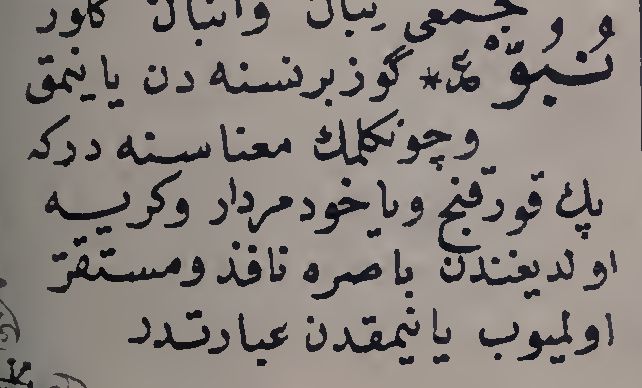 و جمعى نبال وانبال كلور
نُبُوّ * گوز برنسنه دن يايتمق
و چونكلمك معناسنه در كه
پك قورقنج ويا خود مردار وكريه
اولديغندن باصره نافذ ومستقر
اولميوب يايتمقدن عبارتدر